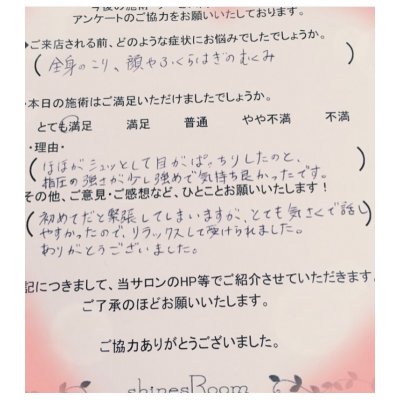 今後の施術・サービス
アンケートのご協力をお願いいたしております。
◆ご来店される前、どのような症状にお悩みでしたでしょうか。
(全身のこり、顔やふくらはぎのむくみ)
・本日の施術はご満足いただけましたでしょうか。
とても満足　満足　普通　やや不満　不満
・理由・
(ほほがシュッとして目がぱっちりしたのと、
指圧の強さが少し強めで気持ち良かったです。)
その他、ご意見・ご感想など、ひとことお願いいたします!
(初めてだと緊張してしまいますが、とても気さくで話し
やすかったので、リラックスして受けられました。
ありがとうございました。)
記につきまして、当サロンのHP等でご紹介させていただきます。
ご了承のほどお願いいたします。
ご協力ありがとうございました。
shinesRoom